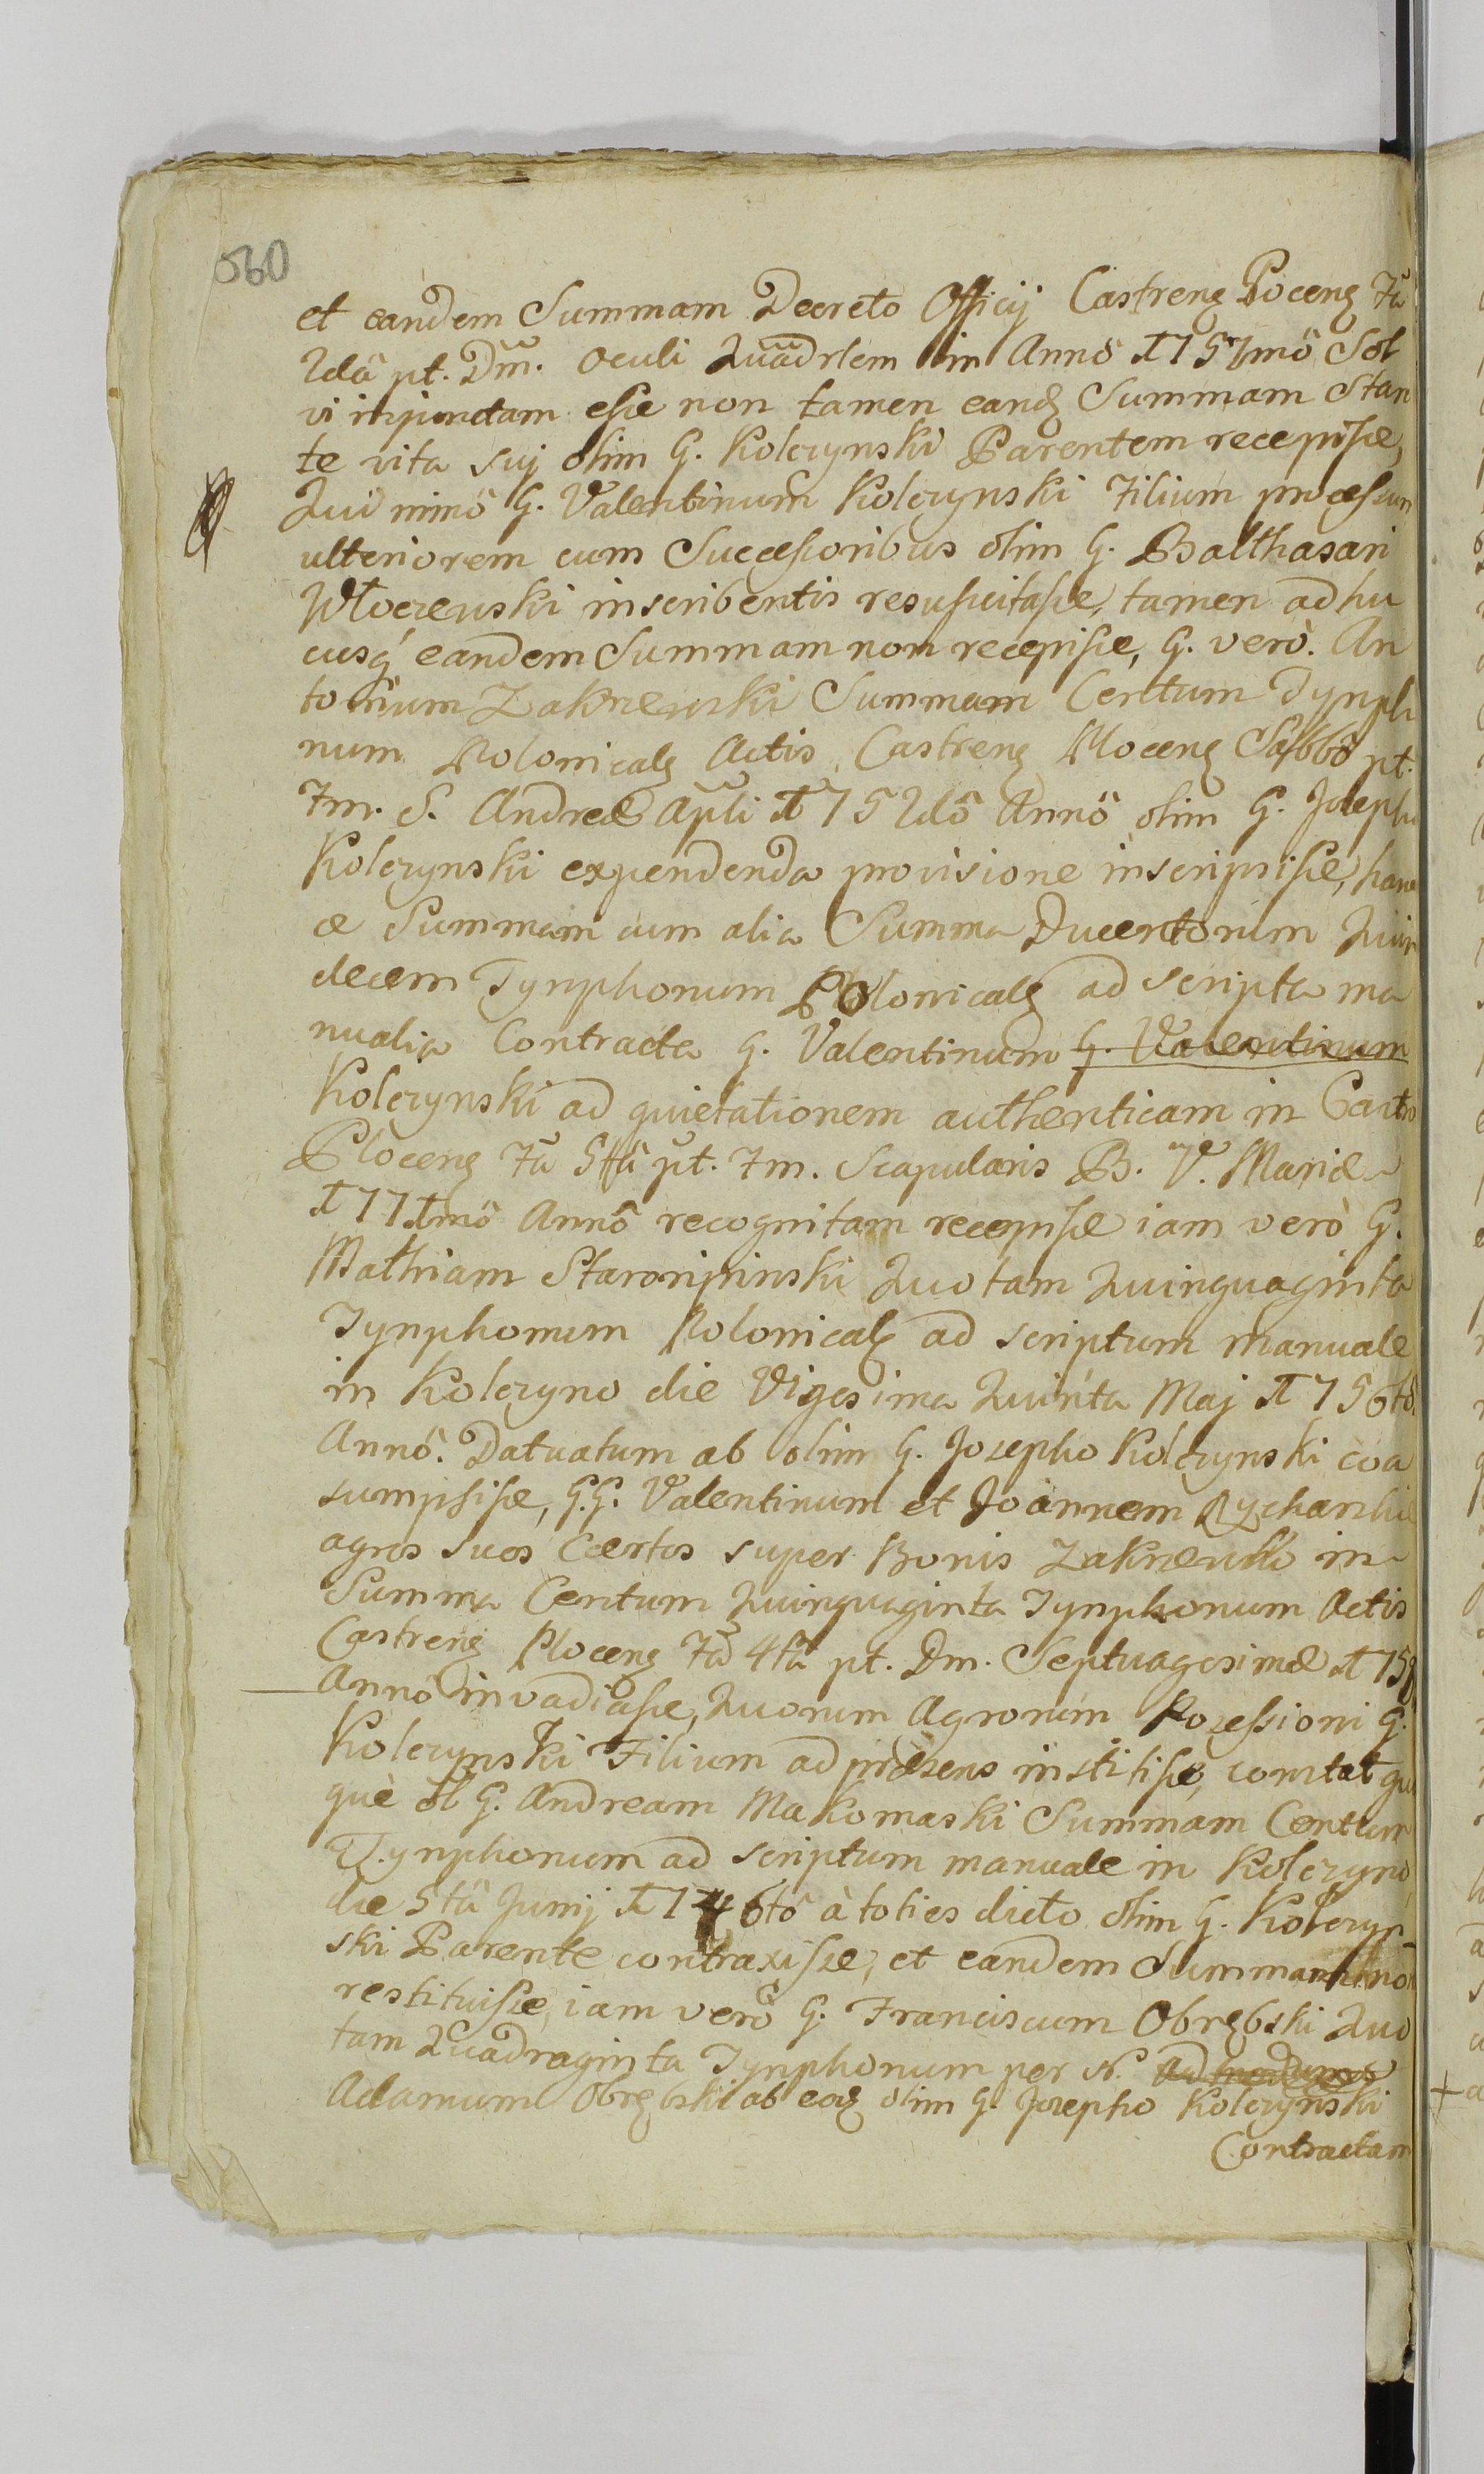 560
et eandem Summam Decreto Officij Castreng Poceng Fã
2dâ pt. Dm̃. Oculi Quãdrlem in Annô 1757mô Sol
vi injunctam esse non tamen eandȝ Summam Stan
te vita suj olim G. Kolczynski Parentem recepisse,
Quinimô G. Valentinum Kolczynski Filium processum
ulteriorem cum Successoribus olim G. Balthasari
Włoczewski inscribentis resuscitasse, tamen adhu
cusq́ eandem Summam non recepisse, G. verò. An
tonium Zakrzewski Summam Centum Tynpho
num Polonicalȝ Actis Castreng Ploceng Sabbô pt.
Fm. S. Andreæ Apli 1752dô Annô olim G. Josepho
Kolczynski expendenda provisione inscripsisse, hanc
ce Summam cum alia Summa Ducentorum Quin
decem Tynphonum Polonicalȝ ad scripta ma
nualia Contracta G. Valentinum G. Valentinum
Kolczynski ad quietationem authenticam in Castro
Ploceng Fã 5tâ pt. Fm. Scapularis B. V. Mariæ
1771mô Annô recognitam recepisse iam verò G.
Mathiam Staroripinski Quotam Quinquaginta
Tynphonum Polonicalȝ ad scriptum manuale
in Kolczyno die Vigesima Quinta Maj 1756tô
Annô. Datuatum ab olim G. Josepho Kolczynski coa
sumpsisse, G.G. Valentinum et Joannem Rycharskie
agros suos Certos super Bonis Zakrzewko in
Summa Centum Quinquaginta Tynphonum Actis
Castreng Ploceng Fã 4tâ pt. Dm. Septuagesimæ 1758
Annô invadiasse, Quorum Agrorum Possessioni G.
Kolczynski Filium ad præsens institisse, constat que
què ol G. Andream Makomaski Summam Centum
Tynphonum ad scriptum manuale in Kolczyno
die 5tâ Junij 1746tô à toties dicto olim G. Kolczyn
ski Parente contraxisse, et eandem Summam non
restituisse, iam verô G. Franciscum Obrębski Quo
tam Quadraginta Tynphonum per N.
Adamum Obrębski ab eodȝ olim G. Josepho Kolczynski
Contractam